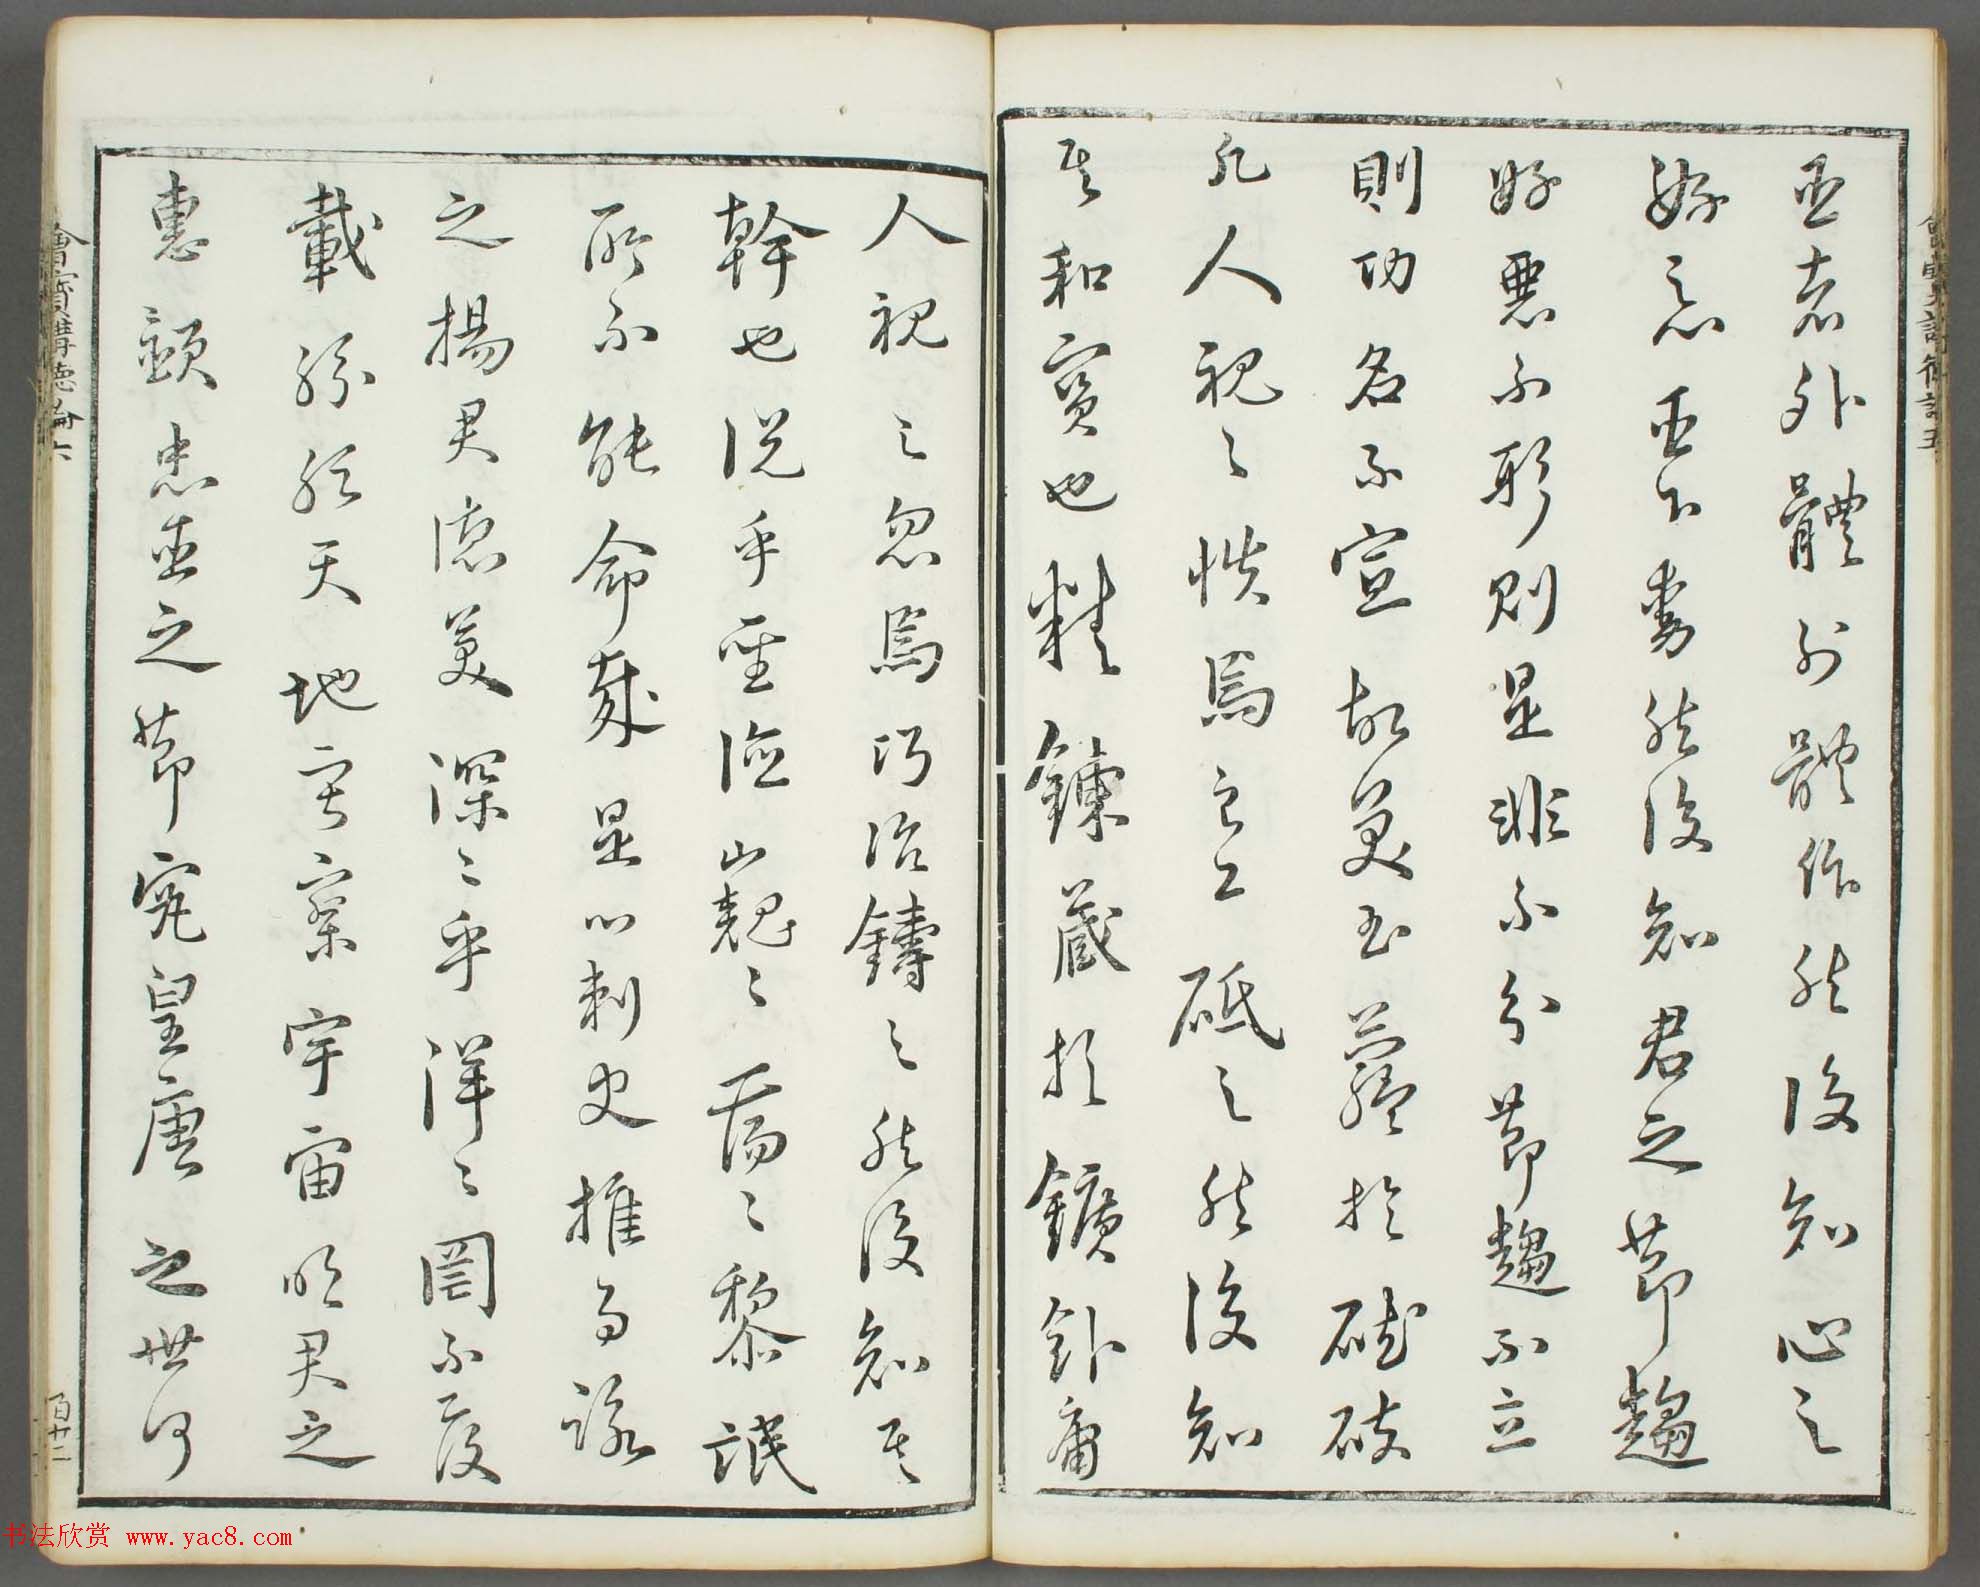 臣者外體外體作然後知心之
好惡臣下動然後知君之節趨
好惡不形則是非不分節趨不立
則功名不宣故美玉蘊於碔砆
凡人視之怢焉良工砥之然後知
其和寶也精鍊藏於鑛朴庸
人視之忽焉巧冶鑄之然後知其
幹也況乎聖德巍々蕩々黎氓
所不能命哉是以刺史推而詠
之揚君德美深々乎洋々罔不覆
載紛紜天地寂寥宇宙明君之
惠顯忠臣之節究皇唐之世何
講德論六
百廿二
书法欣赏 www.yac8.com